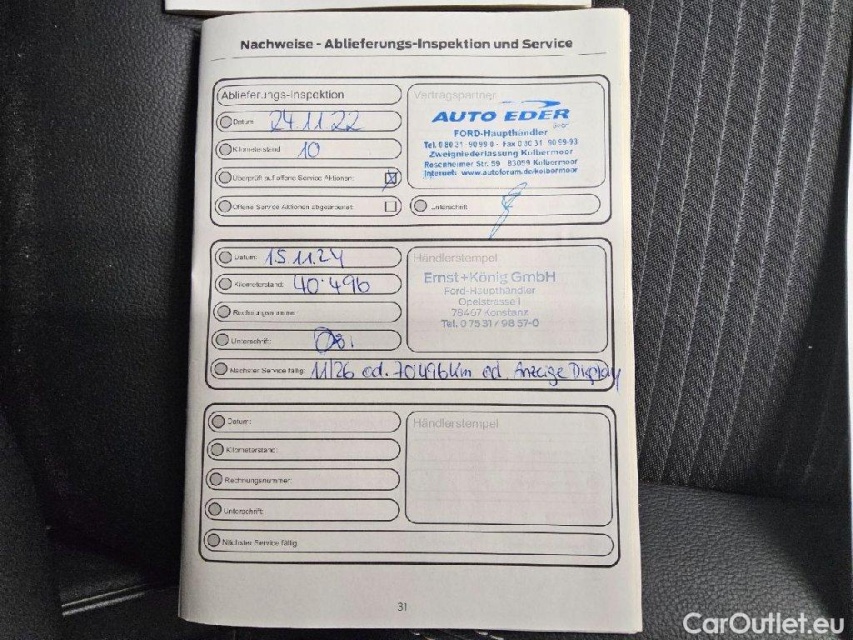 Nachweise - Ablieferungs-Inspektion und Service
Ablieferungs-Inspektion
Vertragspartner
Datum 24.11.22
Kilometerstand 10
Überprüft auf offene Service Aktionen:
Offene Service Aktionen abgearbeitet:
AUTO EDER
FORD-Haupthändler
Tel. 0 80 31 90 99 0 - Fax 0 80 31 90 99-93
Zweigniederlassung Kolbermoor
Rosenheimer Str. 59 83059 Kolbermoor
Internet: www.autoforum.de/kolbermoor
Unterschrift
Datum: 15.11.24
Kilometerstand: 40.496
Rechnungsnummer:
Unterschrift:
Händlerstempel
Ernst+König GmbH
Ford-Haupthändler
Opelstrasse 1
78467 Konstanz
Tel. 0 75 31 / 98 57-0
Nächster Service fällig: 11/26 od. 70.496 km od. Anzeige Display
Datum:
Kilometerstand:
Rechnungsnummer:
Unterschrift:
Händlerstempel
Nächster Service fällig
31
CarOutlet.eu